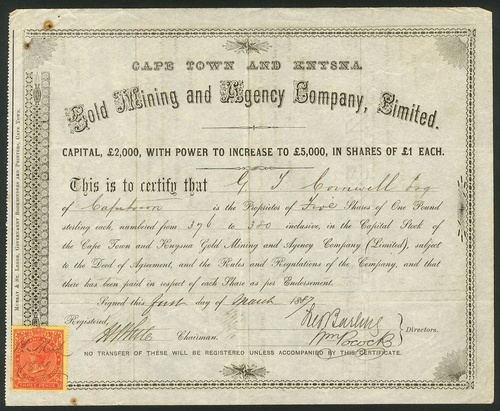 CAPE TOWN AND KNYSNA
Gold Mining and Agency Company, Limited.
CAPITAL, £2,000, WITH POWER TO INCREASE TO £5,000, IN SHARES OF £1 EACH.
This is to certify that G T Cornwell Esq
of Capetown is the Proprietor of Five Shares of One Pound
sterling each, numbered from 376 to 380 inclusive, in the Capital Stock of
the Cape Town and Knysna Gold Mining and Agency Company (Limited), subject
to the Deed of Agreement, and the Rules and Regulations of the Company, and that
there has been paid in respect of each Share as per Endorsement.
Signed this first day of March 1887
Registered,
Chairman.
Wm Pocock
Directors.
NO TRANSFER OF THESE WILL BE REGISTERED UNLESS ACCOMPANIED BY THIS CERTIFICATE.
MURRAY & ST. LEGER, GOVERNMENT BOOKBINDERS AND PRINTERS, CAPE TOWN.